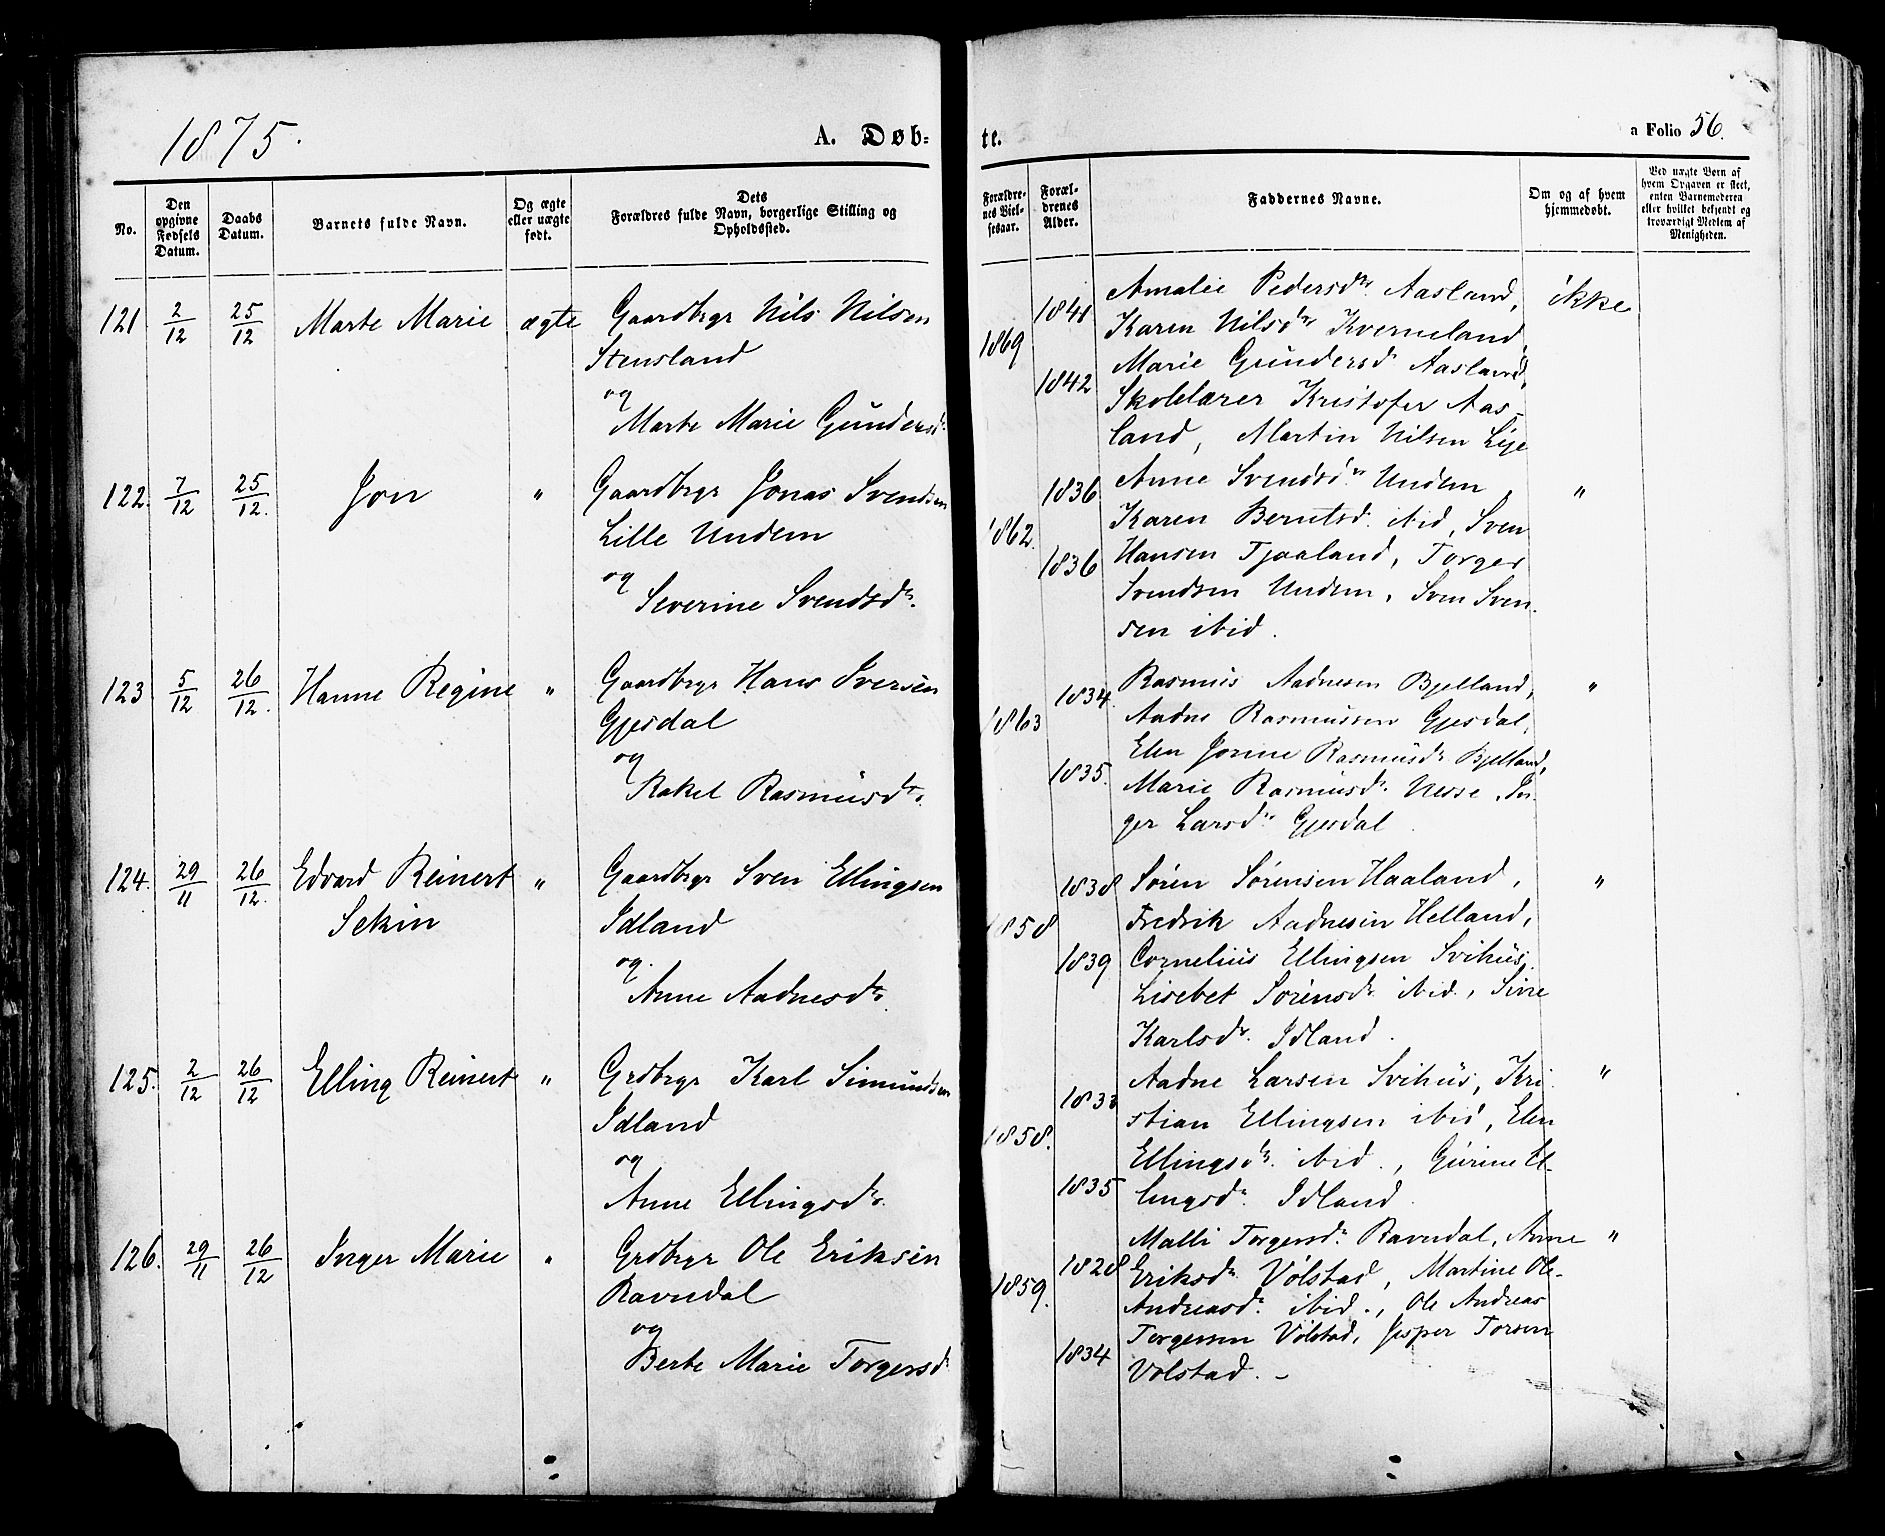 1875.
A. Døb=
te.
a Folio 56.
No.
Den
opgivne
Fødsels
Datum.
Daabs
Datum.
Barnets fulde Navn.
Og ægte
eller uægte
født.
Dets
Forældres fulde Navn, borgerlige Stilling og
Opholdssted.
Forældre-
nes Viel-
sesaar.
Foræl-
drenes
Alder.
Faddernes Navne.
Om og af hvem
hjemmedøbt.
Ved uægte Børn af
hvem Opgaven er skeet,
enten Barnemoderen
eller hvilket bekjendt og
troværdigt Medlem af
Menigheden.
121 2/12 25/12 Marte Marie ægte Gaardbrgr Nils Nilsen
Stensland
og
Marte Marie Gundersdr
1869
1841
1842
Amalie Pedersdtr. Aasland,
Karen Nilsdtr Kverneland,
Marie Gundersdr Aasland,
Skolelærer Kristofer Aas-
land, Martin Nilsen Lye
ikke
122. 7/12 25/12. Jon " Gaardbrgr Jonas Svendsen
Lille Undem
og
Severine Svendsdr.
1862.
1836
1836
Anne Svendsdtr. Undem,
Karen Berntsd. ibid, Sven
Hansen Tjaaland, Torger
Svendsen Undem, Sven Sven-
sen ibid.
"
123 5/12 26/12. Hanne Regine " Gaardbrgr Hans Iversen
Gjesdal
og
Rakel Rasmusdtr.
1863
1834.
1835.
Rasmus Aadnesen Bjelland,
Aadne Rasmussen Gjesdal,
Elen Jorine Rasmusdr Bjelland,
Marie Rasmusdr. Nesse, In-
ger Larsdtr Gjesdal.
"
124. 29/11 26/12. Edvard Reinert " Gaardbrgr Sven Ellingsen
Sekin
Idland
og.
Anne Aadnesdtr.
1858
1838
1839
Søren Sørensen Haaland,
Fredrik Aadnesen Helland,
Cornelius Ellingsen Svihus,
Lisebet Sørensdr. ibid., Sire
Karlsdr. Idland.
"
125. 2/12 26/12 Elling Reinert " Grdbrgr Karl Simundsen
Idland
og
Anne Ellingsdtr.
1858.
1833
1835
Aadne Larsen Svihus, Kri-
stian Ellingsen ibid, Elen
Ellingsdtr. ibid., Gurine El-
lingsdr Idland.
"
126. 29/11 26/12 Inger Marie " Grdbrgr Ole Eriksen
Ravndal
og
Berte Marie Torgersdr
1859.
1828
1834
Malli Torgersdr. Ravndal, Anne
Eriksdr Vølstad, Martine Ole-
Andreasdr. ibid., Ole Andreas
Torgersen Vølstad, Jesper Torsen
Vølstad. -
"